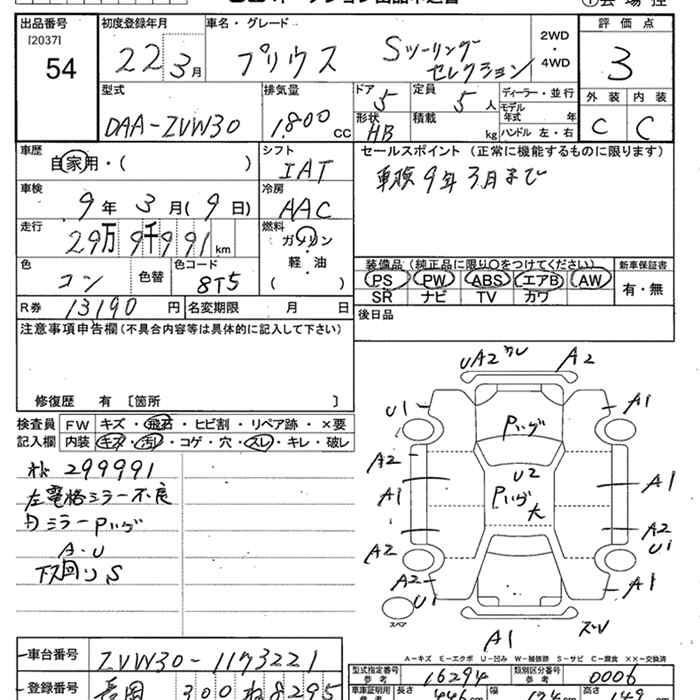 出品番号 初度登録年月 車名・グレード 2WD ・ 4WD 評価点
[2037]
54 22 3月 プリウス Sツーリング セレクション 3
型式 排気量 ドア 5 定員 5人 ディーラー・並行 外装 内装
モデル年式 年
DAA-ZVW30 1,800cc 形状 HB 積載 kg ハンドル 左・右 C C
車歴 自家用・( ) シフト IAT セールスポイント (正常に機能するものに限ります)
車検 9年3月(9日) 冷房 AAC 車検9年3月まで
走行 29万9千991km 燃料 ガソリン
軽・油
( )
色 コン 色替 色コード 8T5 装備品(純正品に限り○をつけてください) 新車保証書
PS PW ABS エアB AW 有・無
SR ナビ TV カワ
R券 13190円 名変期限 月 日 後日品
注意事項申告欄(不具合内容等は具体的に記入して下さい)
修復歴 有 [箇所 ]
検査員 FW キズ・飛石・ヒビ割・リペア跡・×要
記入欄 内装 キズ・汚レ・コゲ・穴・スレ・キレ・破レ
299991
左電格ミラー不良
内ミラーPハゲ
A・U
下回りS
UA2 ワレ A2
U1 A1
Pハゲ
A2
U2
A1 Pハゲ大 A1
A2 A2
U1
A2 A1
U1
スペア
A1
A-キズ E-エクボ U-凹み W-補修跡 S-サビ C-腐食 XX-交換済
車台番号 ZVW30-1173221 型式指定番号 参考 16294 類別区分番号 参考 0006
登録番号 300 ね 8295 車車証明用 長さ 446 幅 174 高さ 149